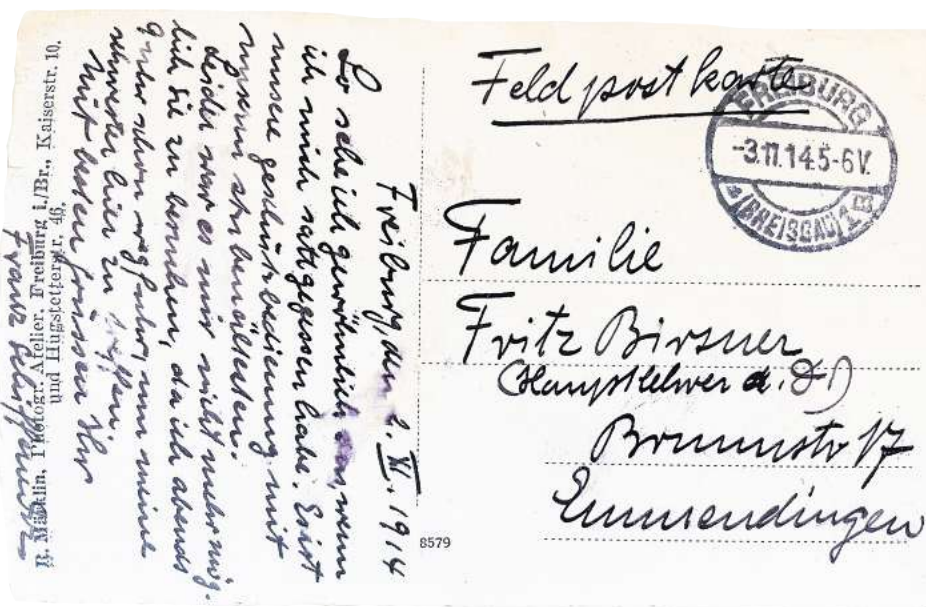 Feldpostkarte
FREIBURG
-3.11.14.5-6V.
(BREISGAU) 1
Familie
Fritz Birsner
(Hauptlehrer a. D.)
Brunnstr 17
Emmendingen
8579
Freiburg, den 2. XI. 1914
So sehe ich gewöhnlich aus, wenn
ich mich sattgegessen habe. Es ist
unsere geschützbedienung mit
unserem
Leider war es mir nicht mehr mög-
lich Sie zu besuchen, da ich abends
schon wegfuhr, um meine
schwester hier zu treffen.
Mit besten grüssen Ihr
Franz
R. Märklin, Photogr. Atelier, Freiburg i./Br., Kaiserstr. 10.
und Hugstetterstr. 46.